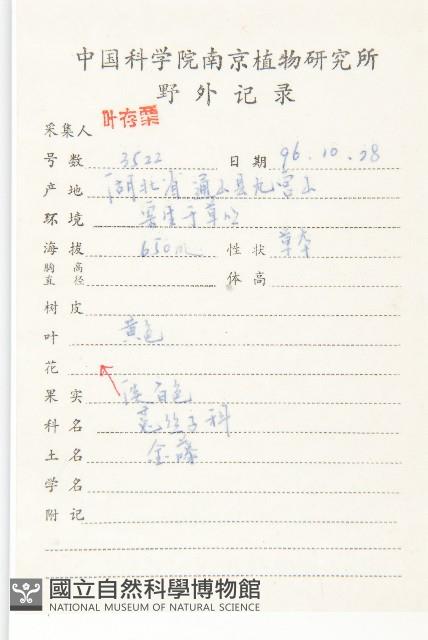 中国科学院南京植物研究所
野外记录
采集人 叶存粟
号数 3522 日期 96.10.28
产地 湖北省通山县九宫山
环境 寄生于草
海拔 650m 性状 草本
胸高直径 体高
树皮
叶 黄色
花
果实 淡白色
科名 菟丝子科
土名 金藤
学名
附记
國立自然科學博物館
NATIONAL MUSEUM OF NATURAL SCIENCE